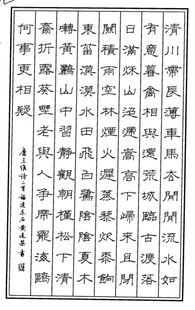 清川帶長薄車馬去閒閒流水如
有意暮禽相與還荒城臨古渡落
日滿秋山迢遞嵩高下歸來且閉
關積雨空林煙火遲蒸藜炊黍餉
東菑漠漠水田飛白鷺陰陰夏木
囀黃鸝山中習靜觀朝槿松下清
齋折露葵野老與人爭席罷海鷗
何事更相疑
唐王維詩二首福建石黃建書